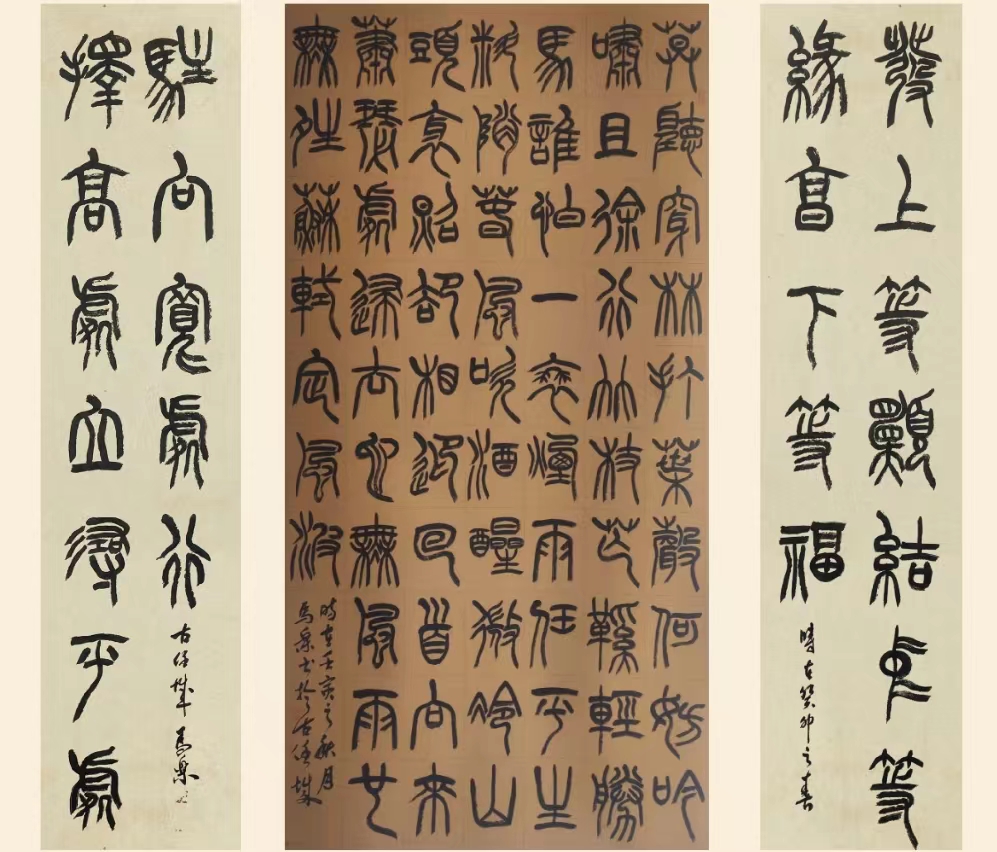 發上等願結中等
緣享下等福
時在癸卯之春
莫聽穿林打葉聲何妨吟
嘯且徐行竹杖芒鞵輕勝
馬誰怕一蓑煙雨任平生
料峭春風吹酒醒微冷山
頭斜照卻相迎回首向來
蕭瑟處歸去也無風雨也
無晴蘇軾定風波
時在壬寅之秋月
馬樂书於古任城
擇高處立尋平處
駐向寬處行
古任城馬樂